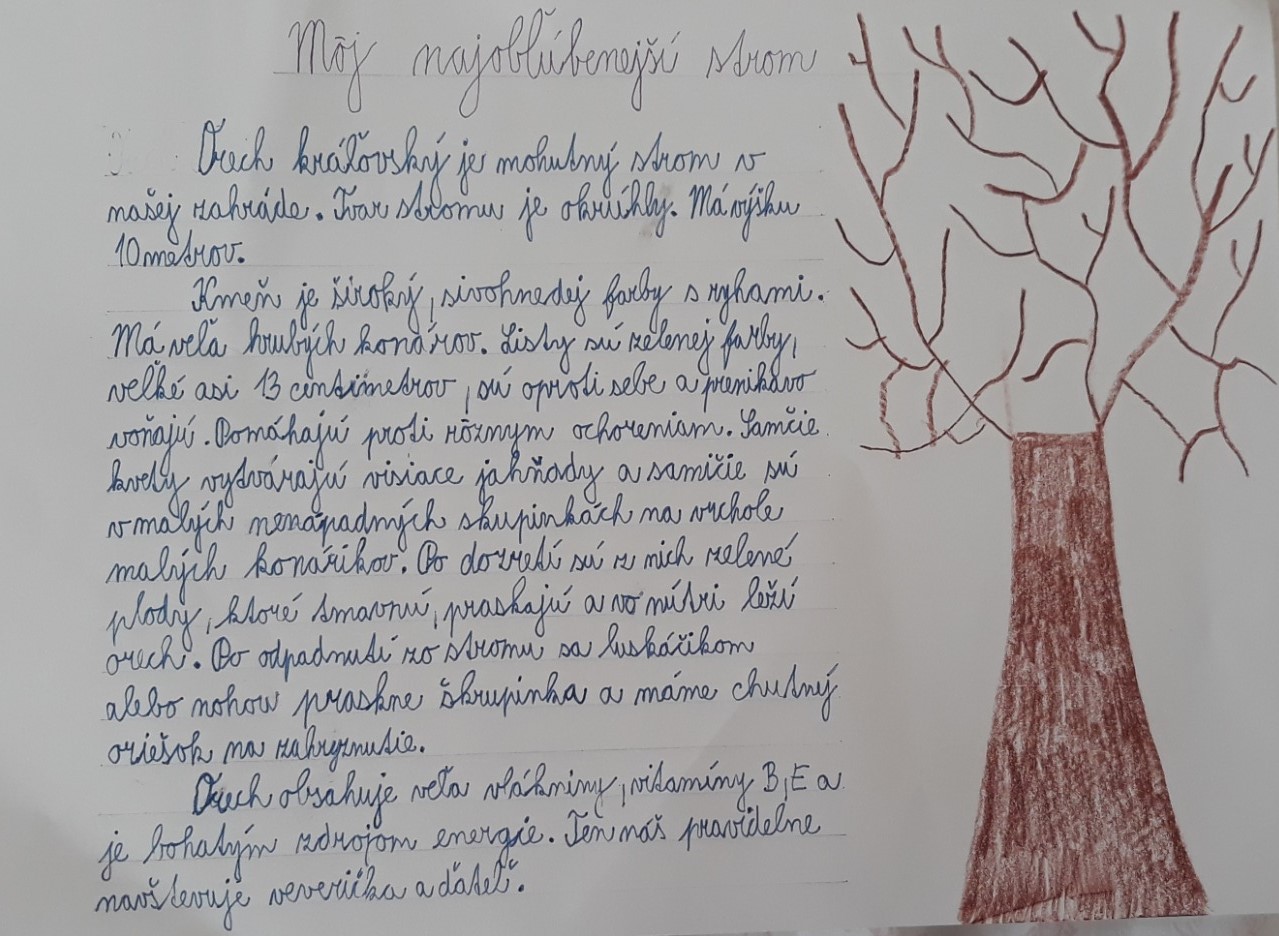 Môj najobľúbenejší strom
Orech kráľovský je mohutný strom v
našej zahráde. Tvar stromu je okrúhly. Má výšku
10 metrov.
Kmeň je široký, sivohnedej farby s ryhami.
Má veľa hrubých konárov. Listy sú zelenej farby,
veľké asi 13 centimetrov, sú oproti sebe a prenikavo
voňajú. Pomáhajú proti rôznym ochoreniam. Samčie
kvety vytvárajú visiace jahňady a samičie sú
v malých nenápadných skupinkách na vrchole
malých konárikov. Po dozretí sú z nich zelené
plody, ktoré tmavnú, praskajú a vo nútri leží
orech. Po odpadnutí zo stromu sa luskáčikom
alebo nohou praskne škrupinka a máme chutný
oriešok na zahryznutie.
Orech obsahuje veľa vlákniny, vitamíny B, E a
je bohatým zdrojom energie. Ten náš pravidelne
navštevuje veverička a ďateľ.